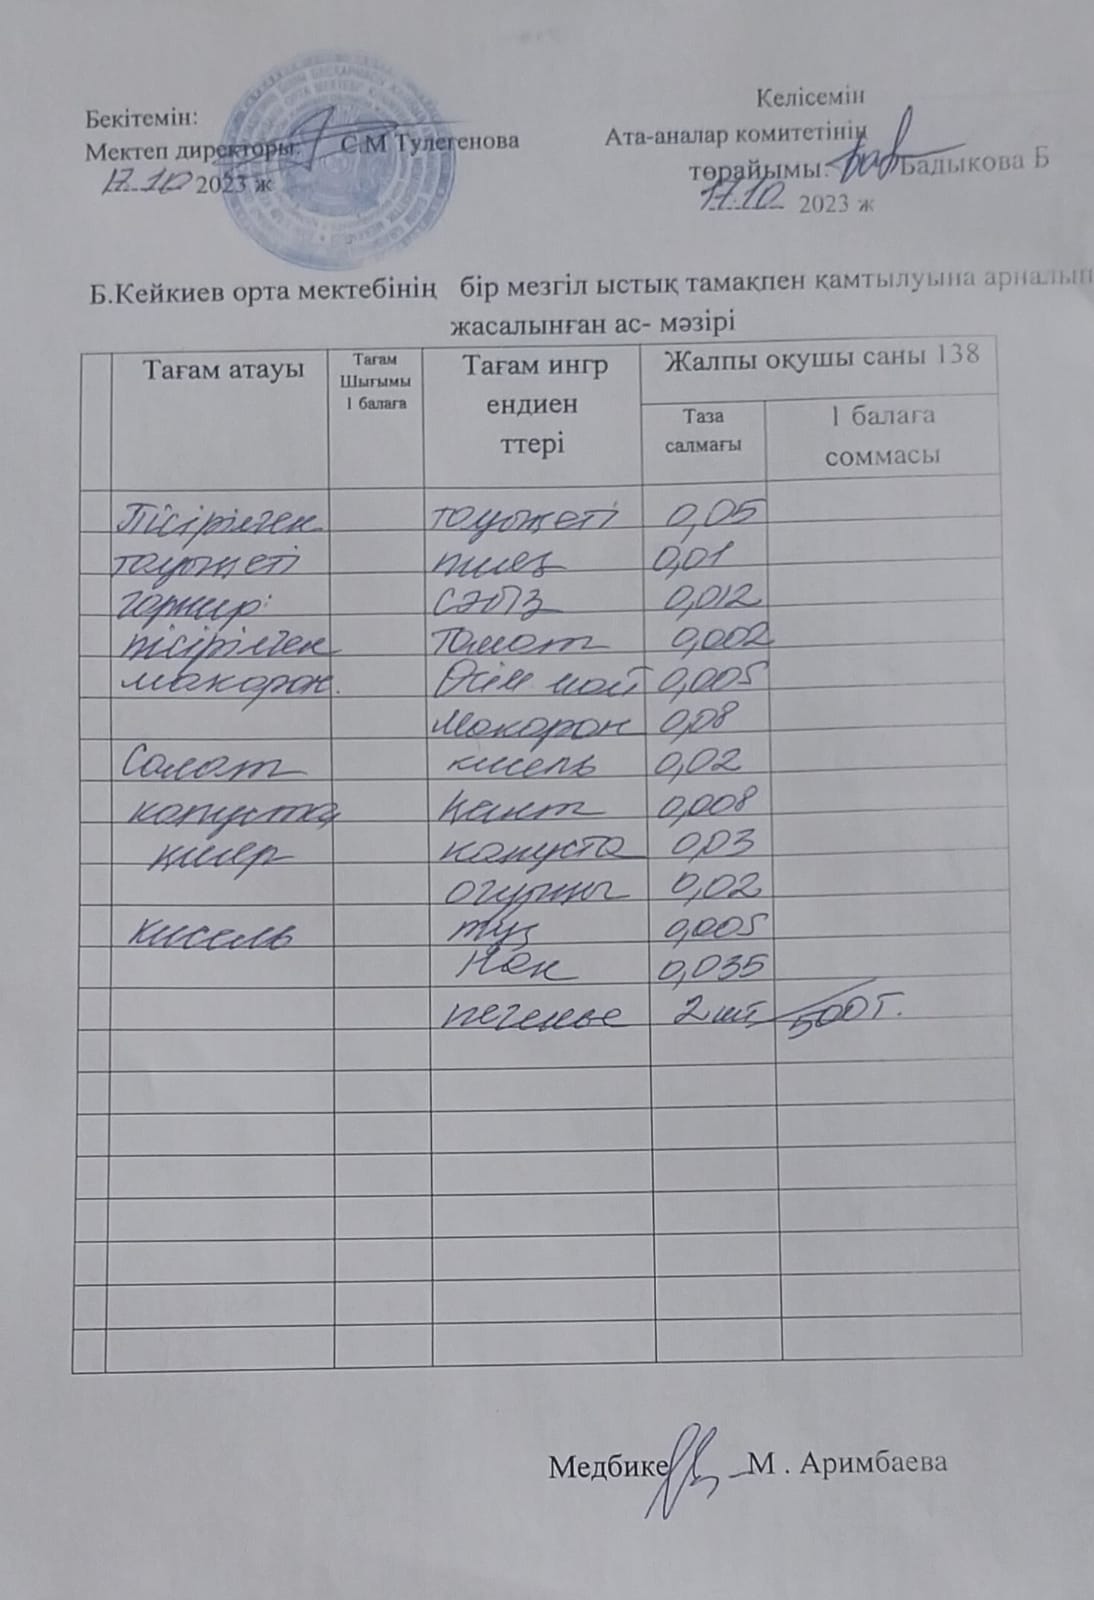 Бекітемін:
Мектеп директоры: С.М Тулегенова
17.10 2023 ж
Келісемін
Ата-аналар комитетінің
төрайымы: Бадыкова Б
17.10 2023 ж
Б.Кейкиев орта мектебінің бір мезгіл ыстық тамақпен қамтылуына арналып
жасалынған ас- мәзірі
Тағам атауы
Тағам
Шығымы
1 балаға
Тағам ингр
ендиен
ттері
Жалпы оқушы саны 138
Таза
салмағы
1 балаға
соммасы
Пісірілген тауықеті 0,05
тауықеті пияз 0,01
гарнир: сәбіз 0,012
пісірілген томат 0,002
макарон. Өсім май 0,005
Макарон 0,08
Салат кисель 0,02
капуста Қант 0,008
қияр капуста 0,03
огурцы 0,02
кисель тұз 0,005
Нан 0,035
печенье 2 шт 500т.
Медбике М . Аримбаева